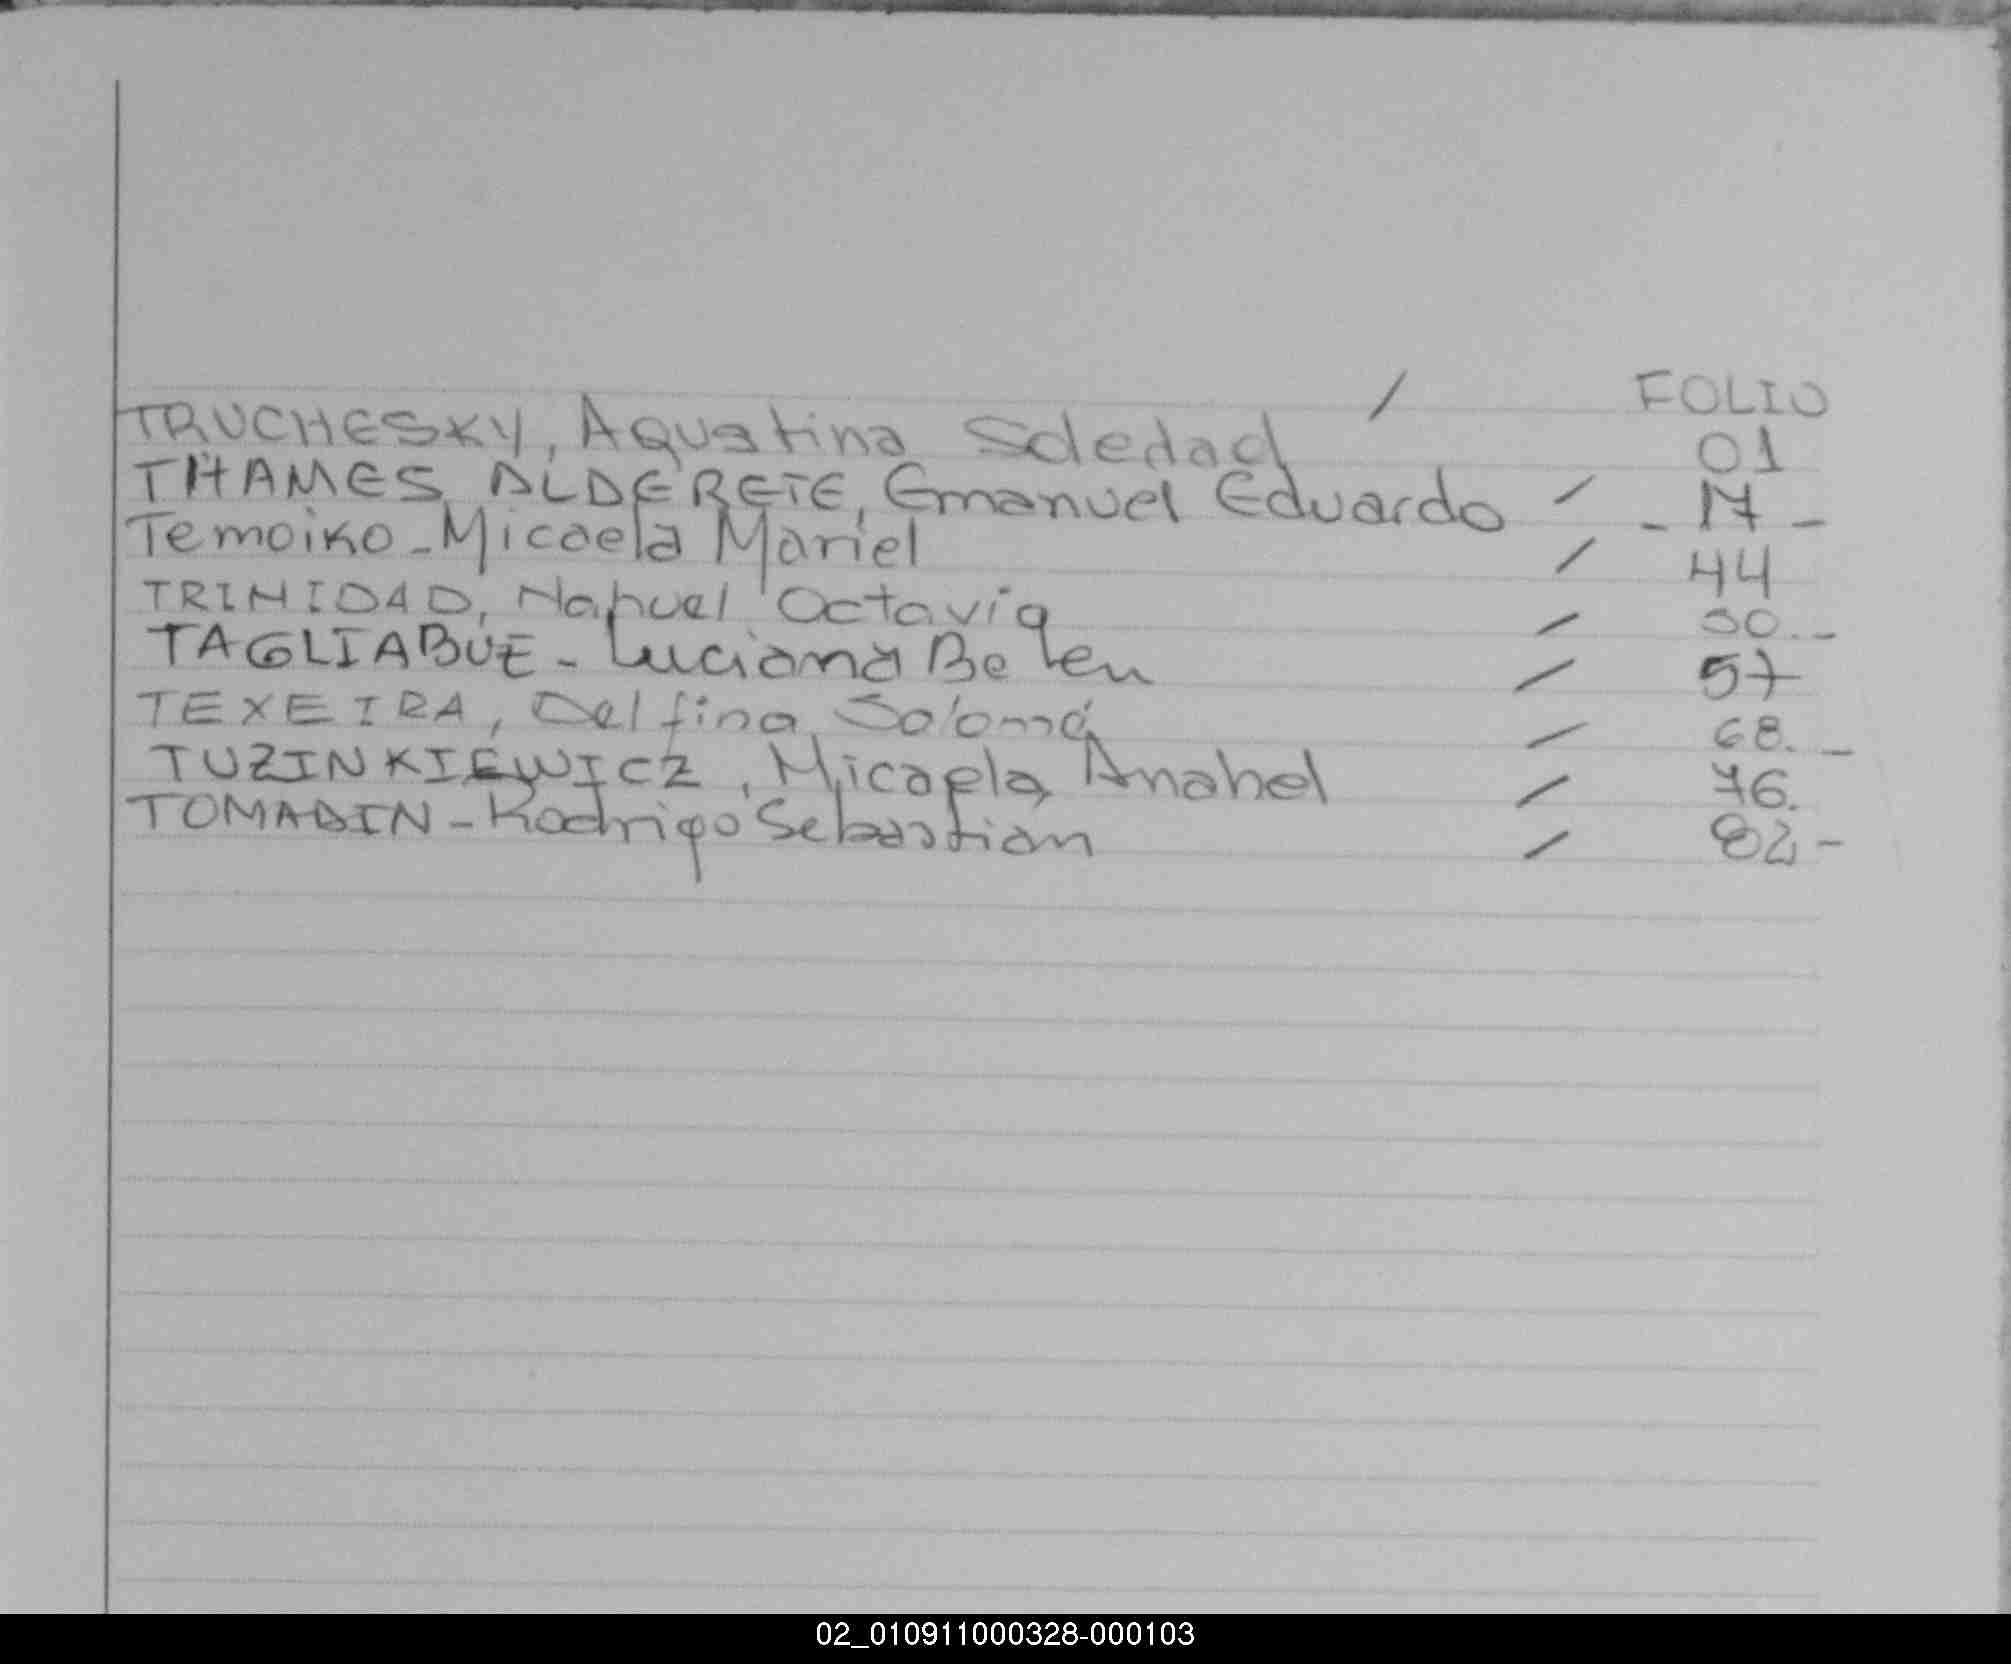 FOLIO
TRUCHESKY, Agustina Soledad / 01
THAMES ALDERETE, Emanuel Eduardo / - 17 -
Temoiko - Micaela Mariel / 44
TRINIDAD, Nahuel Octavio / 50.-
TAGLIABUE - Luciana Belen / 57
TEXEIRA, Delfina Salomé / 68.-
TUZINKIEWICZ, Micaela Anahel / 76.
TOMADIN - Rodrigo Sebastian / 82-
02_010911000328-000103